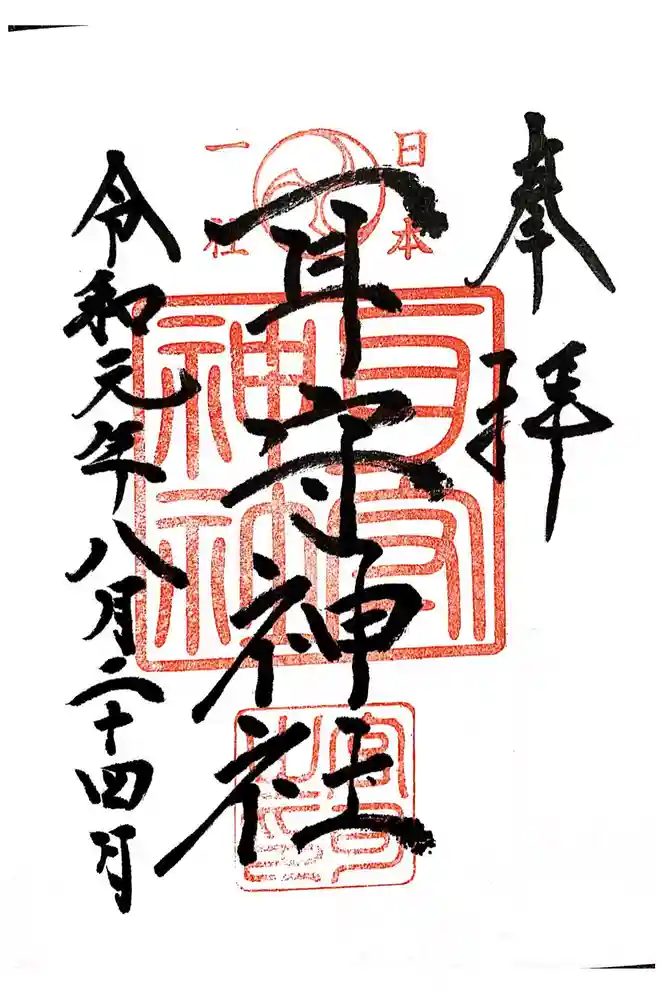 奉拝
日本
一社
耳守神社
宮司
之印
令和元年八月二十四日